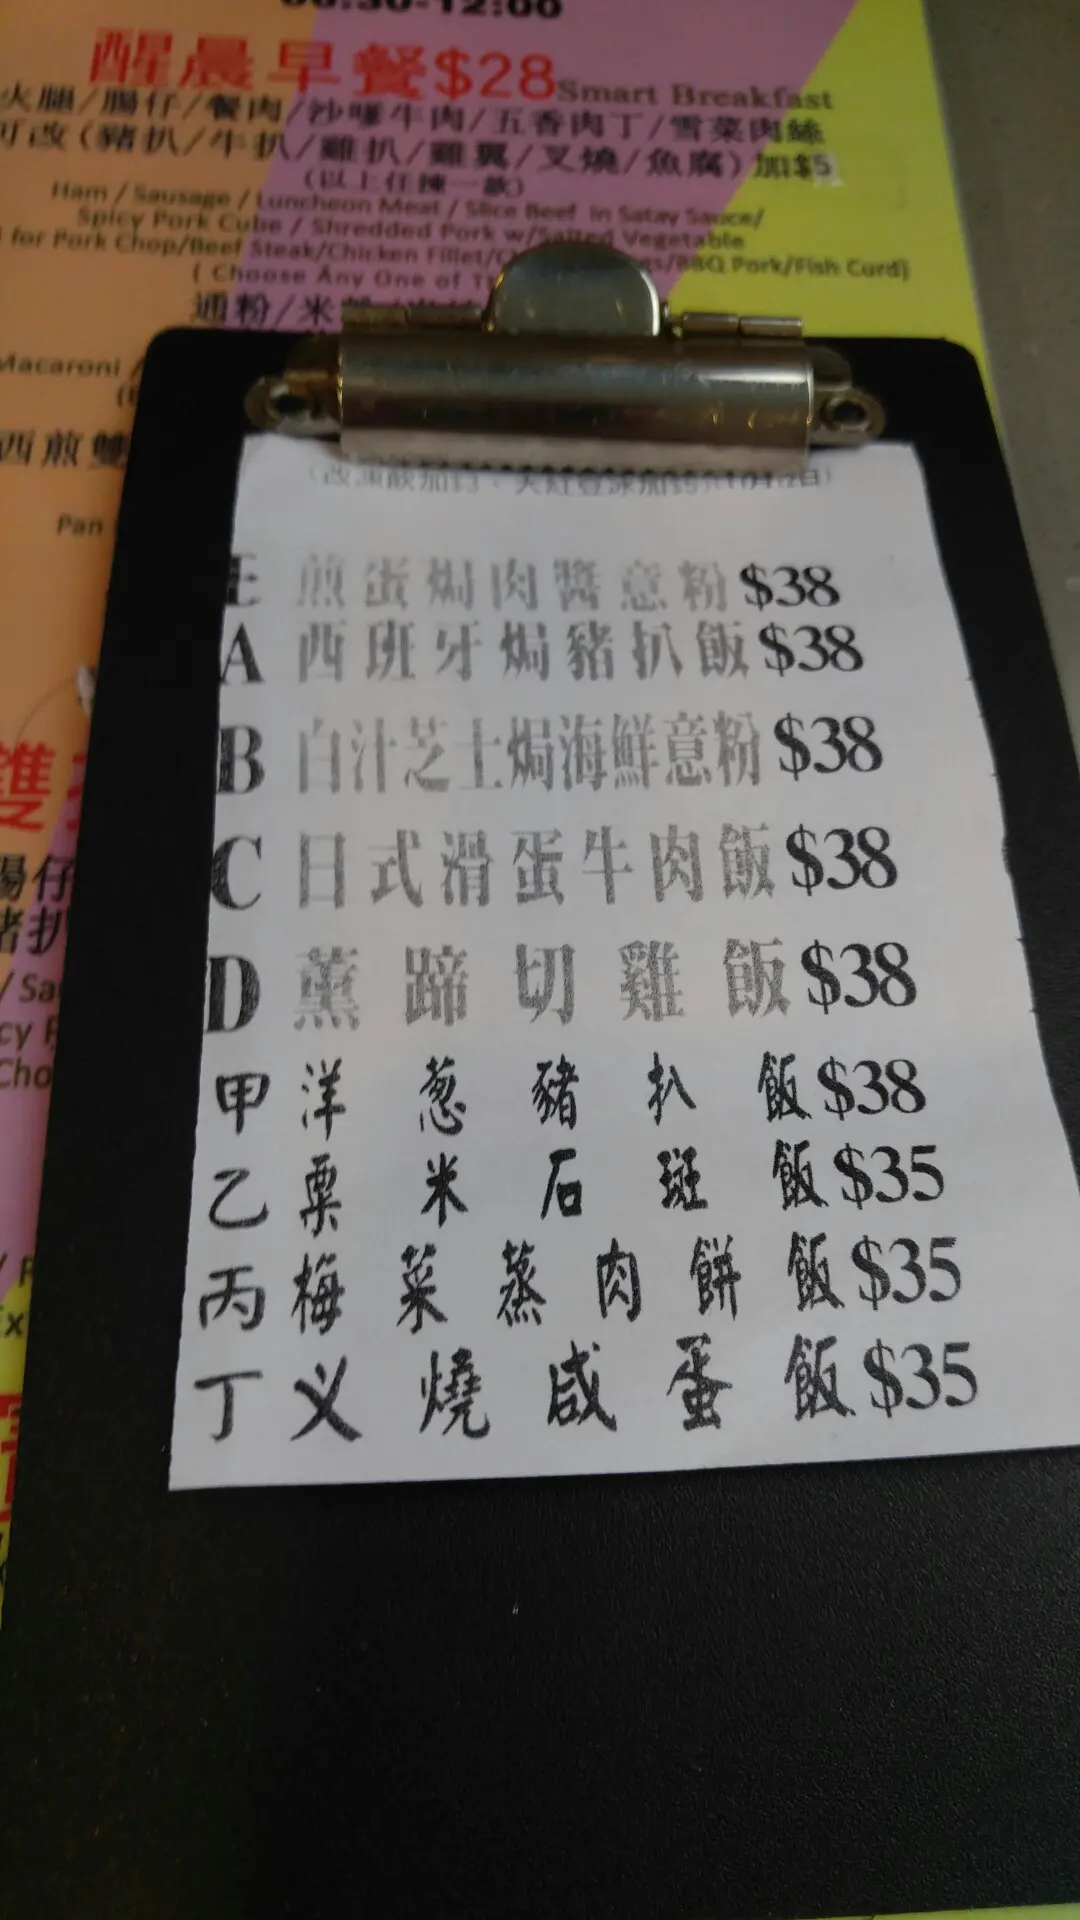 醒晨早餐$28 Smart Breakfast
火腿/腸仔/餐肉/沙嗲牛肉/五香肉丁/雪菜肉絲
可改(豬扒/牛扒/雞扒/雞翼/叉燒/魚腐)加$5
(以上任揀一款)
Ham / Sausage / Luncheon Meat / Slice Beef in Satay Sauce/
Spicy Pork Cube / Shredded Pork w/Salted Vegetable
for Pork Chop/Beef Steak/Chicken Fillet/ BBQ Pork/Fish Curd)
( Choose Any One of
通粉/米
Macaroni /
西煎雙
Pan
雙
腸仔
豬扒
E 煎蛋焗肉醬意粉 $38
A 西班牙焗豬扒飯 $38
B 白汁芝士焗海鮮意粉 $38
C 日式滑蛋牛肉飯 $38
D 薰蹄切雞飯 $38
甲 洋葱豬扒飯 $38
乙 粟米石斑飯 $35
丙 梅菜蒸肉餅飯 $35
丁 义燒咸蛋飯 $35